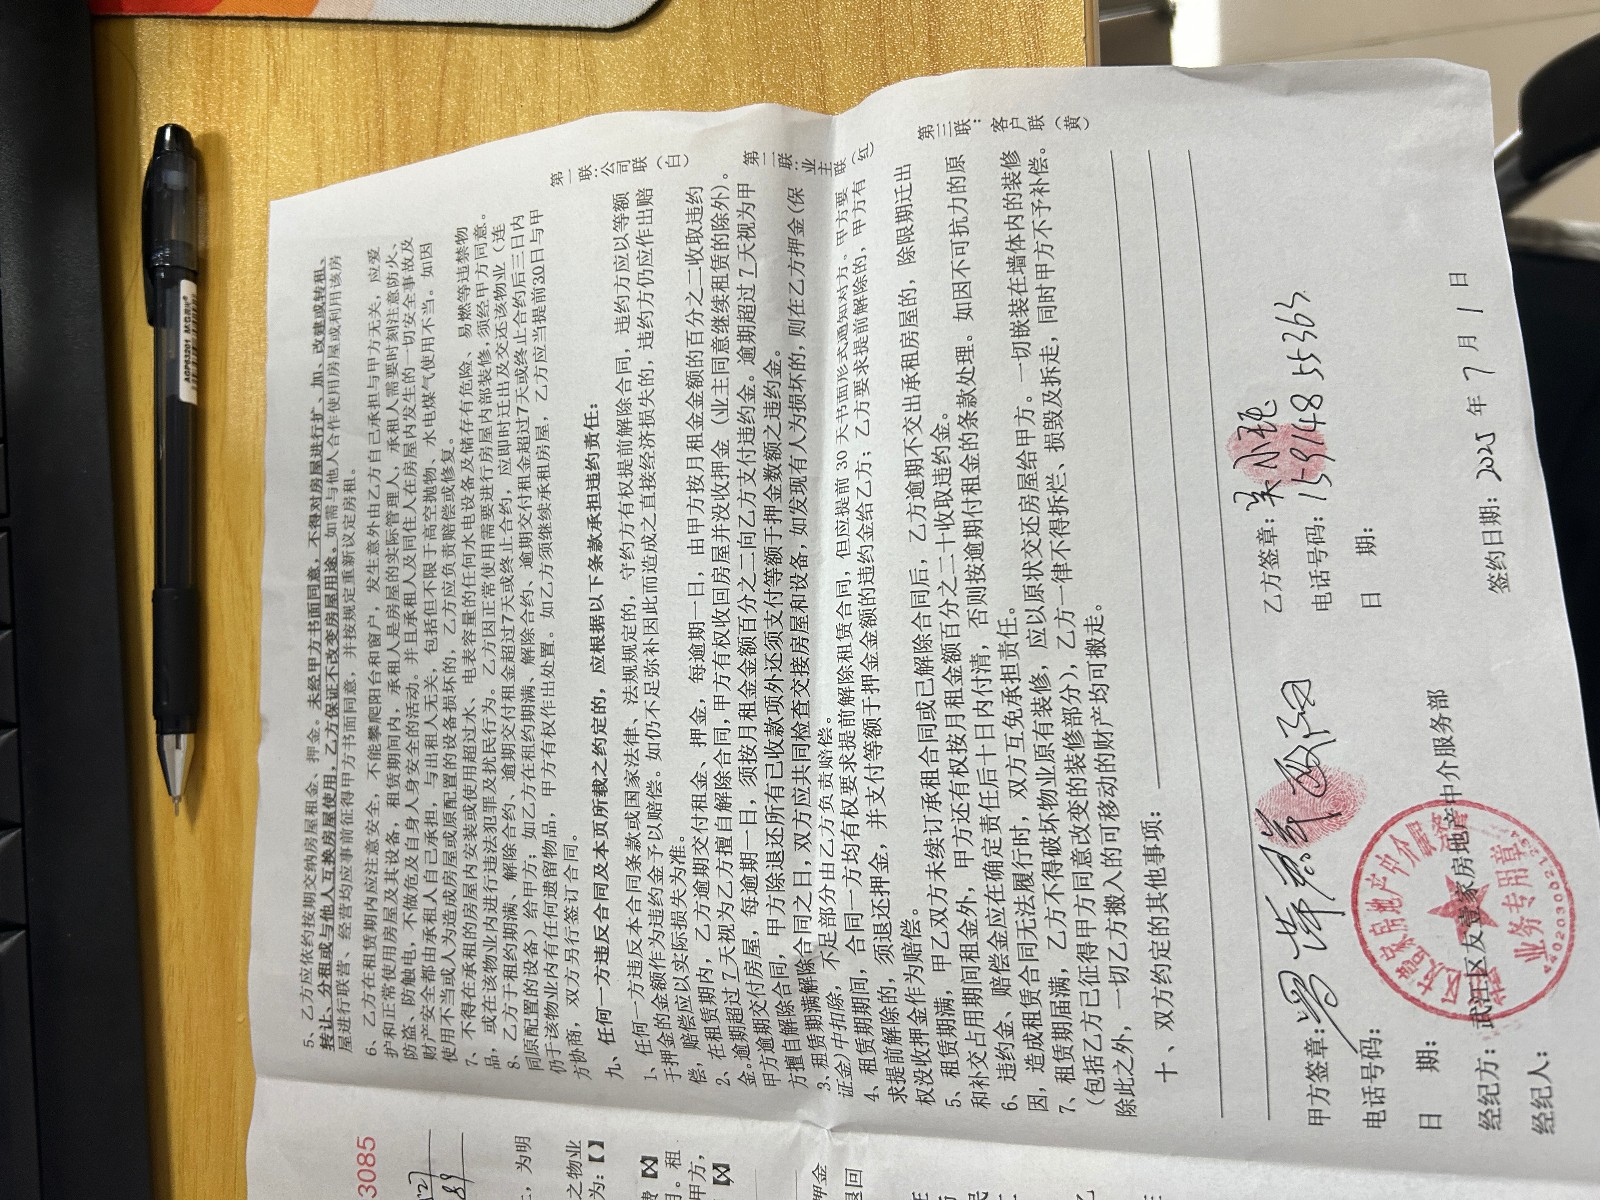 5、乙方应依约按期交纳房屋租金、押金。未经甲方书面同意，不得对房屋进行扩、加、改建或转租、
转让、分租或与他人互换房屋使用，乙方保证不改变房屋用途。如需与他人合作使用房屋或利用该房
屋进行联营、经营均应事前征得甲方书面同意，并按规定重新议定房租。
6、乙方在租赁期内应注意安全，不能攀爬阳台和窗户，发生意外由乙方自己承担与甲方无关，应爱
护和正常使用房屋及其设备，租赁期间内，承租人是房屋的实际管理人，承租人需要时刻注意防火、
防盗、防触电，不做危及自身人身安全的活动。并且承租人及同住人在房屋内发生的一切安全事故及
财产安全都由承租人自己承担，与出租人无关，包括但不限于高空抛物、水电煤气使用不当。如因
使用不当或人为造成房屋或原配置的设备损坏的，乙方应负责赔偿或修复。
7、不得在承租的房屋内安装或使用超过水、电表容量的任何水电设备及储存有危险、易燃等违禁物
品，或在该物业内进行违法犯罪及扰民行为。乙方因正常使用需要进行房屋内部装修，须经甲方同意。
8、乙方于租约期满、解除合约、逾期交付租金超过7天或终止合约，应即时迁出及交还该物业（连
同原配置的设备）给甲方；如乙方在租约期满、解除合约、逾期交付租金超过7天或终止合约后三日内
仍于该物业内有任何遗留物品，甲方有权作出处置。如乙方须继续承租房屋，乙方应当提前30日与甲
方协商，双方另行签订合同。
九、任何一方违反合同及本页所载之约定的，应根据以下条款承担违约责任：
1、任何一方违反本合同条款或国家法律、法规规定的，守约方有权提前解除合同，违约方应以等额
于押金的金额作为违约金予以赔偿。如仍不足弥补因此而造成之直接经济损失的，违约方仍应作出赔
偿，赔偿应以实际损失为准。
2、在租赁期内，乙方逾期交付租金、押金，每逾期一日，由甲方按月租金金额的百分之二收取违约
金。逾期超过 7 天视为乙方擅自解除合同，甲方有权收回房屋并没收押金（业主同意继续租赁的除外）。
甲方逾期交付房屋，每逾期一日，须按月租金金额百分之二向乙方支付违约金。逾期超过 7 天视为甲
方擅自解除合同，甲方除退还所有已收款项外还须支付等额于押金数额之违约金。
3、租赁期满解除合同之日，双方应共同检查交接房屋和设备，如发现有人为损坏的，则在乙方押金(保
证金)中扣除，不足部分由乙方负责赔偿。
4、租赁期期间，合同一方均有权要求提前解除租赁合同，但应提前 30 天书面形式通知对方。甲方要
求提前解除的，须退还押金，并支付等额于押金金额的违约金给乙方；乙方要求提前解除的，甲方有
权没收押金作为赔偿。
5、租赁期满，甲乙双方未续订承租合同或已解除合同后，乙方逾期不交出承租房屋的，除限期迁出
和补交占用期间租金外，甲方还有权按月租金额百分之二十收取违约金。
6、违约金、赔偿金应在确定责任后十日内付清，否则按逾期付租金的条款处理。如因不可抗力的原
因，造成租赁合同无法履行时，双方互免承担责任。
7、租赁期届满，乙方不得破坏物业原有装修，应以原状交还房屋给甲方。一切嵌装在墙体内的装修
（包括乙方已征得甲方同意改变的装修部分），乙方一律不得拆烂、损毁及拆走，同时甲方不予补偿。
除此之外，一切乙方搬入的可移动的财产均可搬走。
十、双方约定的其他事项：
甲方签章：
乙方签章：
电话号码：
电话号码：15914855363
日 期：
日 期：
经纪方：武江区友壹家房地产中介服务部
经纪人：
签约日期：2025 年 7 月 1 日
业务专用章
第一联：公司联（白）
第二联：业主联（红）
第三联：客户联（黄）
3085
，为明
之物业
为：【】
。租
甲方，
押金
退回